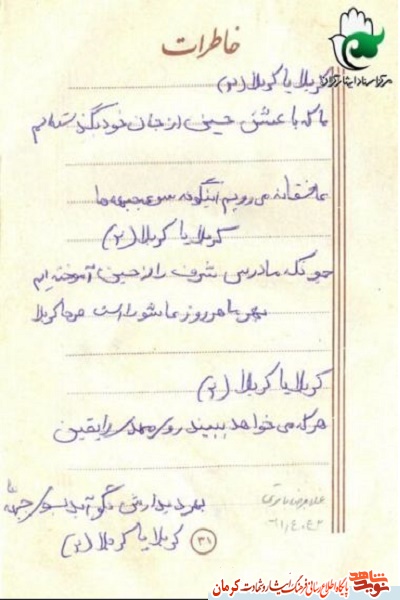 خاطرات
مرکز اسناد ایثارگران
کربلا یا کربلا (۲)
ما که با عشق حسین از جان خود بگذشته‌ایم
عاشقانه می‌رویم اینگونه سوی جبهه‌ها
کربلا یا کربلا (۲)
چونکه ما درس شرف را از حسین آموخته‌ایم
بهر ما هر روز عاشورا است هر جا کربلا
کربلا یا کربلا (۲)
هر که می‌خواهد ببیند روی مهدی را یقین
بهر دیدارش بگو آید بسوی جبهه‌ها
کربلا یا کربلا (۲)
غلامرضا باقری
۶۱/۴/۲
۳۱
شاهد نوید
پایگاه اطلاع رسانی فرهنگ ایثار و شهادت کرمان